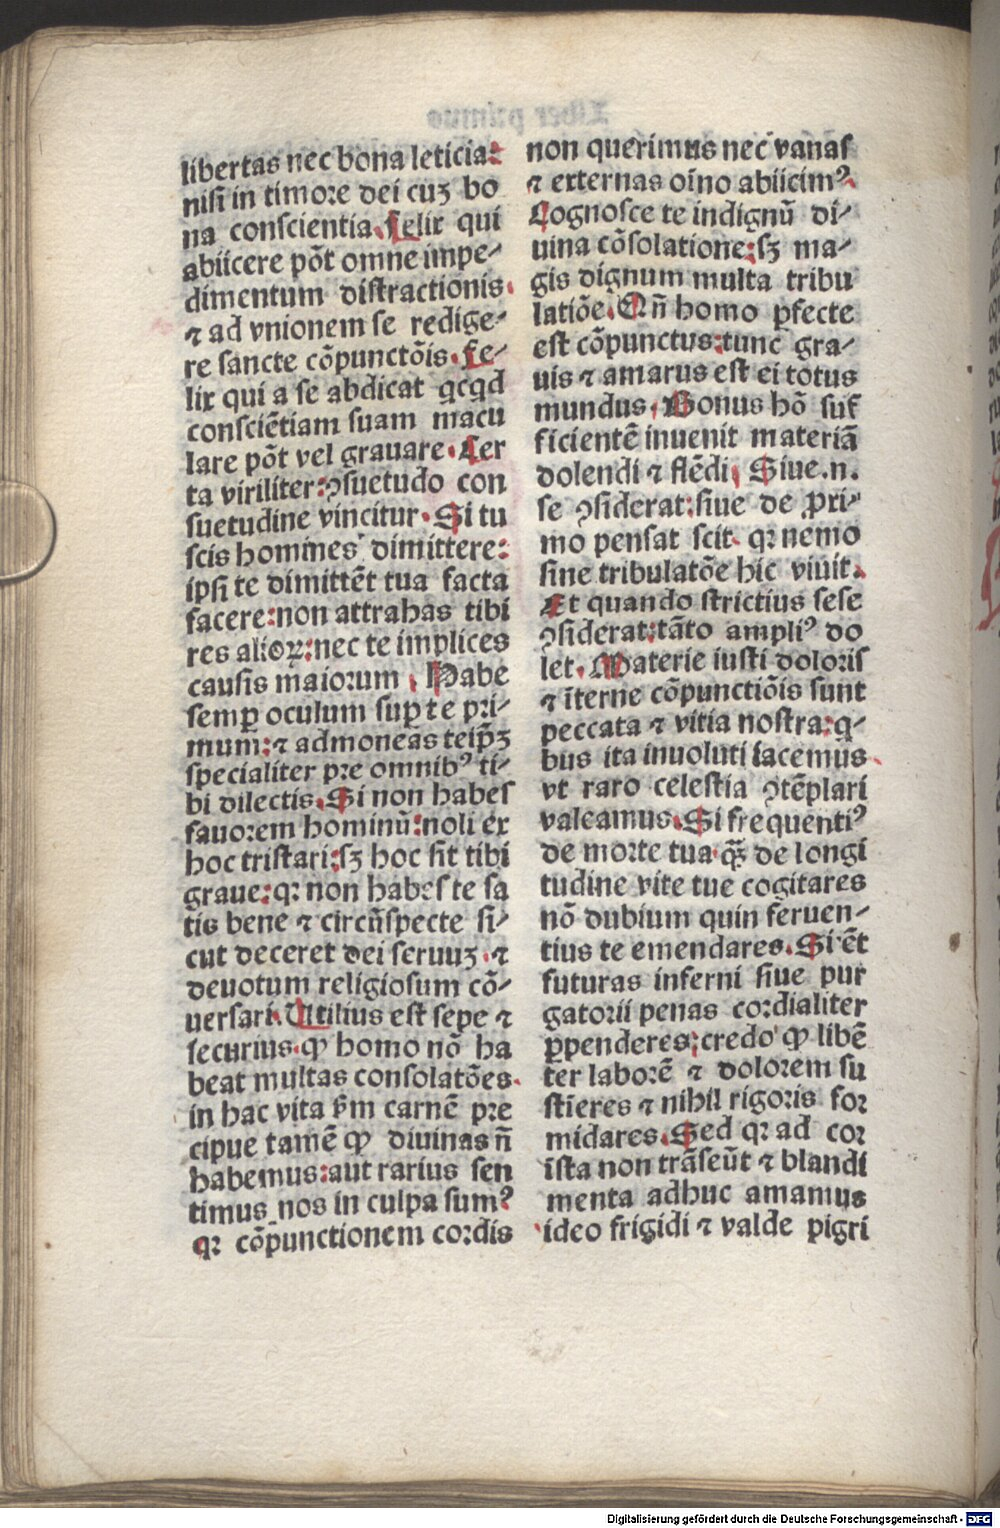 libertas nec bona leticia:
nisi in timore dei cuʒ bo
na conscientia. Felix qui
abiicere põt omne impe⸗
dimentum distractionis.
⁊ ad vnionem se redige⸗
re sancte cõpunctõis. Fe⸗
lix qui a se abdicat qcqd
consciẽtiam suam macu
lare põt vel grauare. Cer
ta viriliter: ꝯsuetudo con
suetudine vincitur. Si tu
scis homines dimittere:
ipsi te dimittẽt tua facta
facere: non attrahas tibi
res alioꝝ: nec te implices
causis maiorum. Habe
semꝑ oculum suꝑ te pri⸗
mum: ⁊ admoneas teip̃ʒ
specialiter pre omnibꝰ ti⸗
bi dilectis. Si non habes
fauorem hominũ: noli ex
hoc tristari: sʒ hoc sit tibi
graue: qꝛ non habes te sa
tis bene ⁊ circũspecte si⸗
cut deceret dei seruuʒ. ⁊
deuotum religiosum cõ⸗
uersari. Utilius est sepe ⁊
securius. ꝙ homo nõ ha
beat multas consolatões.
in hac vita ẜm carnẽ pre
cipue tamẽ ꝙ diuinas ñ
habemus: aut rarius sen
timus nos in culpa sumꝰ
qꝛ cõpunctionem cordis
non querimus nec vanas
⁊ externas oĩno abiicimꝰ.
Cognosce te indignũ di⸗
uina cõsolatione: sʒ ma⸗
gis dignum multa tribu
latiõe. Qñ homo ꝑfecte
est cõpunctus: tunc gra⸗
uis ⁊ amarus est ei totus
mundus. Bonus hõ suf
ficientẽ inuenit materiã
dolendi ⁊ flẽdi. Siue .n.
se ꝯsiderat: siue de ꝓxi⸗
mo pensat scit. qꝛ nemo
sine tribulatõe hic viuit.
Et quando strictius sese
ꝯsiderat: tãto ampliꝰ do
let. Materie iusti doloris
⁊ ĩterne cõpunctiõis sunt
peccata ⁊ vitia nostra: q⸗
bus ita inuoluti iacemus.
vt raro celestia ꝯtẽplari
valeamus. Si frequentiꝰ
de morte tua. q̃ʒ de longi
tudine vite tue cogitares
nõ dubium quin feruen⸗
tius te emendares. Si ẽt
futuras inferni siue pur
gatorii penas cordialiter
ꝑpenderes: credo ꝙ libẽ
ter laborẽ ⁊ dolorem su
stĩeres ⁊ nihil rigoris for
midares. Sed qꝛ ad cor
ĩsta non trãseũt ⁊ blandi
menta adhuc amamus
ideo frigidi ⁊ valde pigri
Digitalisierung gefördert durch die Deutsche Forschungsgemeinschaft - DFG